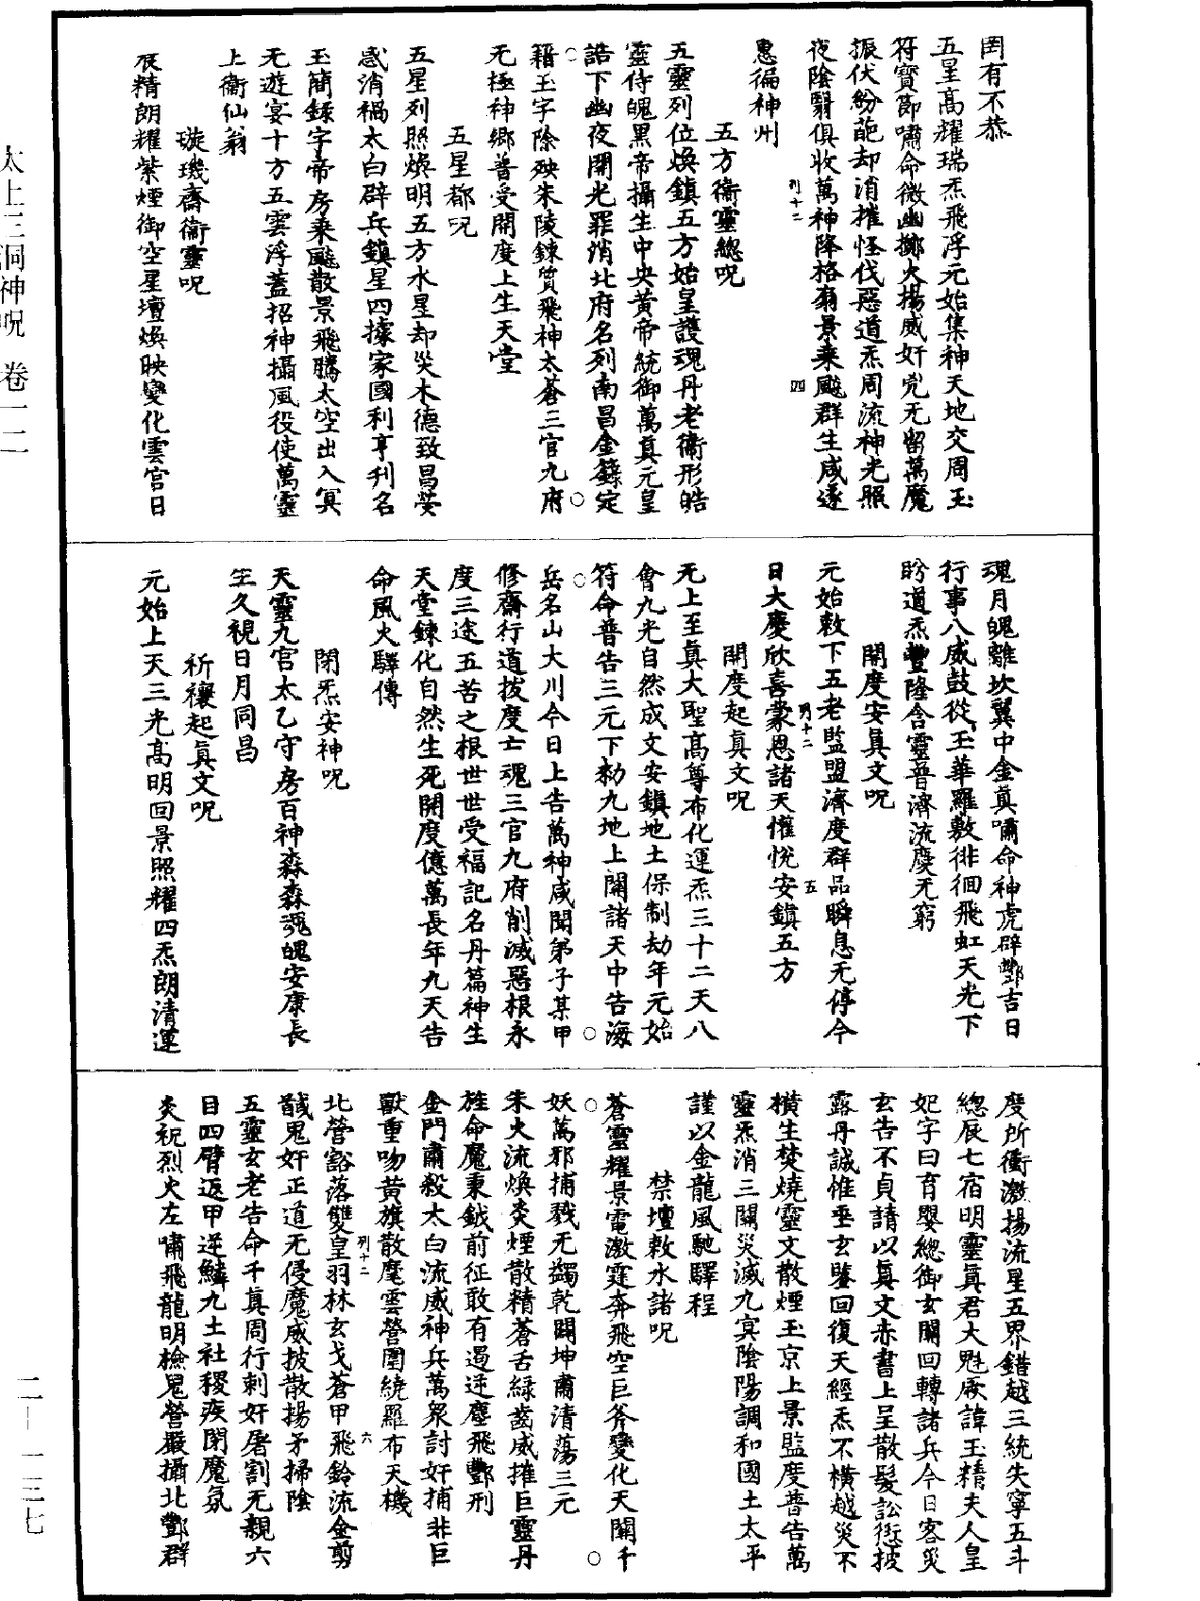 罔有不恭
五星高耀瑞炁飛浮元始集神天地交周玉
符寶節嘯命微幽擲火揚威奸兇无留萬魔
振伏紛葩却消摧怪伐惡道炁周流神光照
夜陰翳俱收萬神降格翥景乘飈群生咸遂
惠徧神州
五方衞靈總呪
五靈列位煥鎮五方始皇護魂丹老衞形皓
靈侍魄黑帝攝生中央黃帝統御萬真元皇
誥下幽夜開光罪消北府名列南昌金籙定
籍玉字除殃朱陵鍊質飛神太蒼三官九府
无極神鄉普受開度上生天堂
五星都呪
五星列照煥明五方水星却災木德致昌熒
惑消禍太白辟兵鎮星四據家國利亨刊名
玉簡錄字帝房乘飈散景飛騰太空出入冥
无遊宴十方五雲浮蓋招神攝風役使萬靈
上衞仙翁
璇璣齋衞靈呪
辰精朗耀紫煙御空星壇煥映變化雲宮日
魂月魄離坎翼中金真嘯命神虎辟酆吉日
行事八威鼓從玉華羅敷徘徊飛虹天光下
眄道炁豐隆含靈普濟流慶无窮
開度安真文呪
元始敕下五老監盟濟度群品瞬息无停今
日大慶欣喜蒙恩諸天懽悅安鎮五方
開度起真文呪
无上至真大聖高尊布化運炁三十二天八
會九光自然成文安鎮地土保制劫年元始
符命普告三元下勑九地上開諸天中告海
岳名山大川今日上告萬神咸聞弟子某甲
修齋行道拔度亡魂三官九府削滅惡根永
度三途五苦之根世世受福記名丹篇神生
天堂鍊化自然生死開度億萬長年九天告
命風火驛傳
閉炁安神呪
天靈九宮太乙守房百神森森魂魄安康長
生久視日月同昌
祈禳起真文呪
元始上天三光高明回景照耀四炁朗清運
度所衝激揚流星五界錯越三統失寧五斗
總辰七宿明靈真君大魁厥諱玉精夫人皇
妃字曰育嬰總御玄關回轉諸兵今日客災
玄告不貞請以真文赤書上呈散髮訟愆披
露丹誠惟垂玄鑒回復天經炁不橫越災不
橫生焚燒靈文散煙玉京上景監度普告萬
靈炁消三關災滅九冥陰陽調和國土太平
謹以金龍風馳驛程
禁壇敕水諸呪
蒼靈耀景電激霆奔飛空巨斧變化天關千
妖萬邪捕戮无蠲乾闢坤肅清蕩三元
朱火流煥炎煙散精蒼舌綠齒威摧巨靈丹
旌命魔秉鉞前征敢有遏逆塵飛酆刑
金門肅殺太白流威神兵萬衆討奸捕非巨
獸重吻黃旗散麾雲營圍繞羅布天機
北營豁落雙皇羽林玄戈蒼甲飛鈴流金剪
馘鬼奸正道无侵魔威披散揚矛掃陰
五靈玄老告命千真周行刺奸屠割无親六
目四臂返甲逆鱗九土社稷疾閉魔氛
炎祝烈火左嘯飛龍明檢鬼營嚴攝北酆群
列十二
四
列十二
五
列十二
六
太上三洞神呪 卷一二
二—一三七